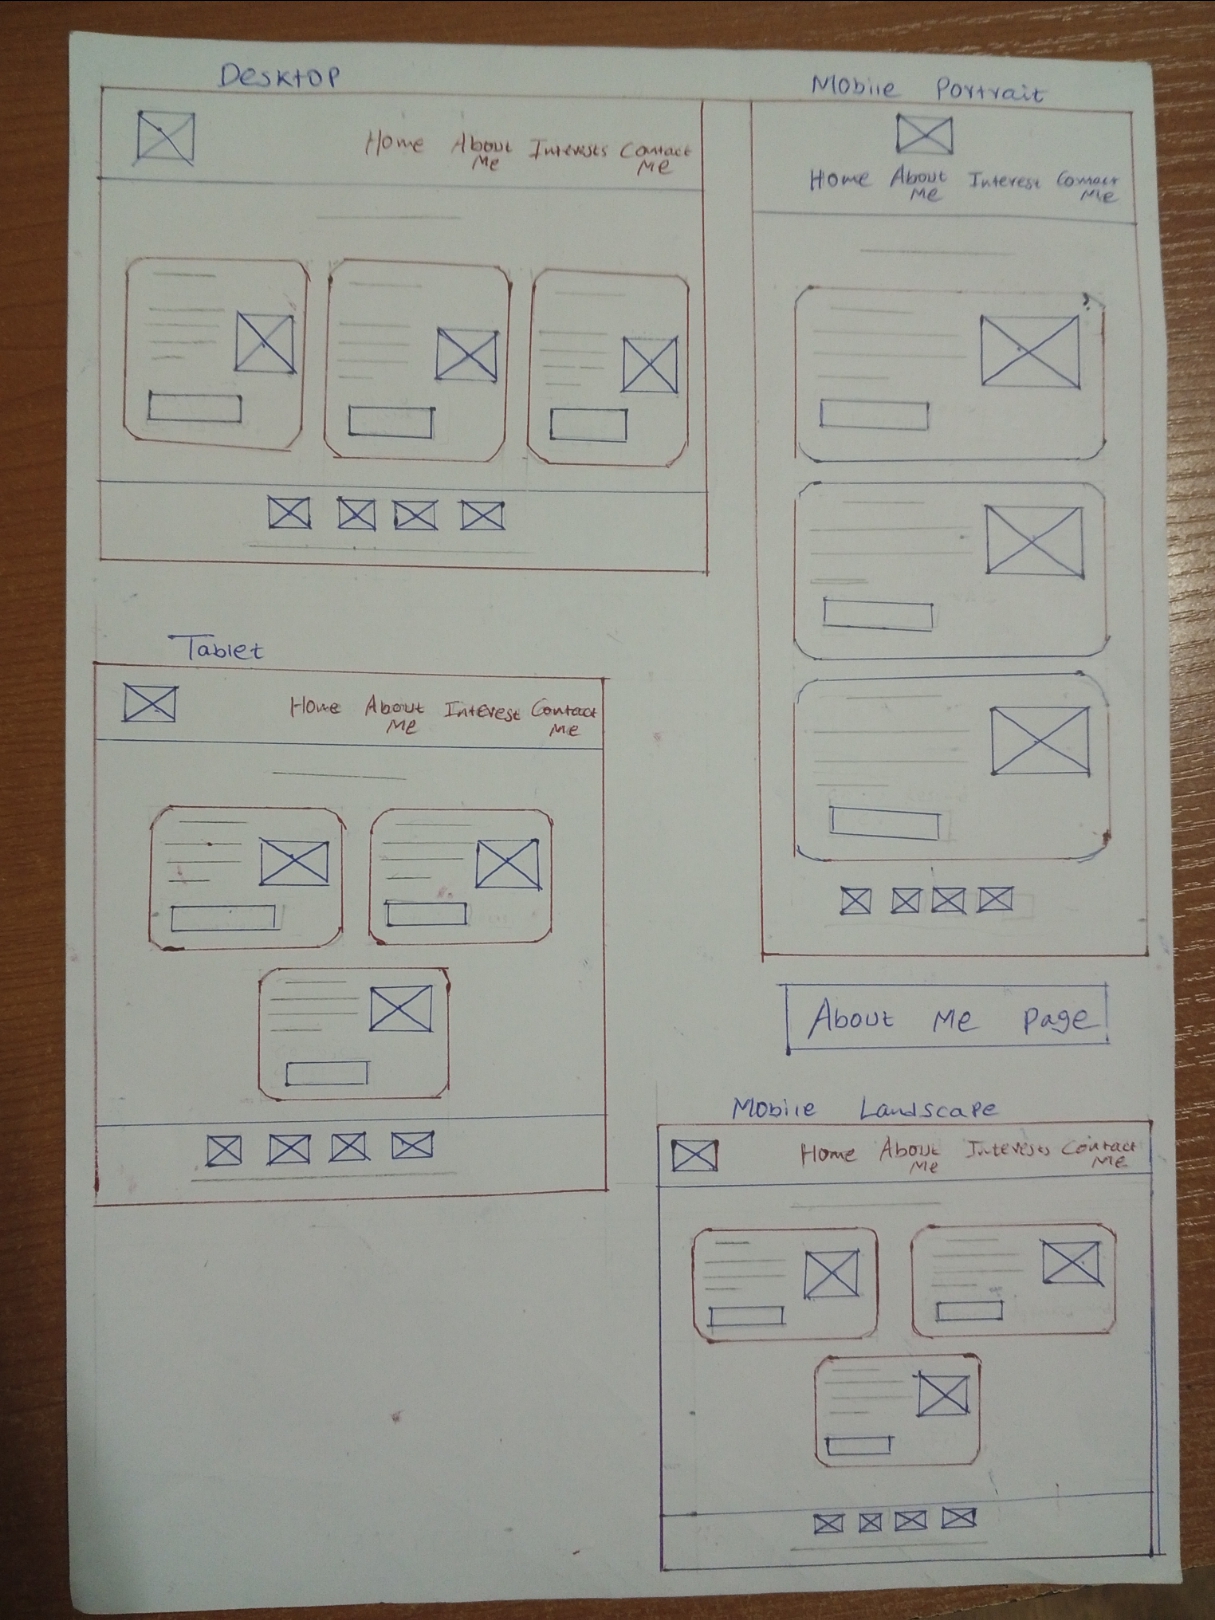 Desktop
Home About Interests Contact
Me Me
Mobile Portrait
Home About Interest Contact
Me Me
Tablet
Home About Interest Contact
Me Me
About Me Page
Mobile Landscape
Home About Interests Contact
Me Me